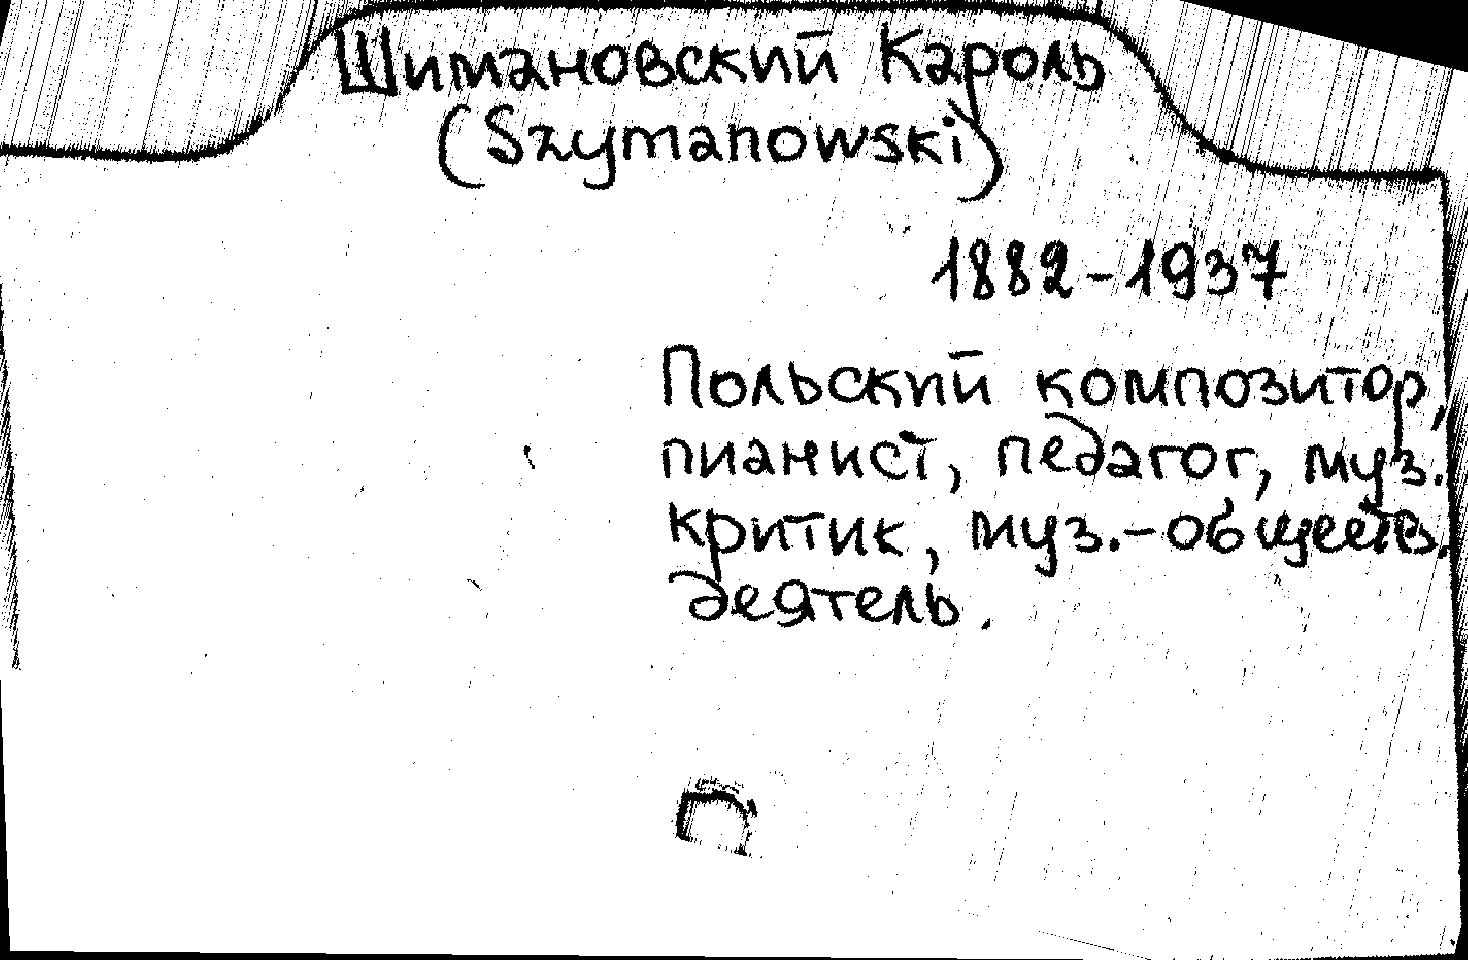 Шимановский Кароль
(Szymanowski)
1882-1937
Польский композитор,
пианист, педагог, муз.
критик, муз.-обществ.
деятель.